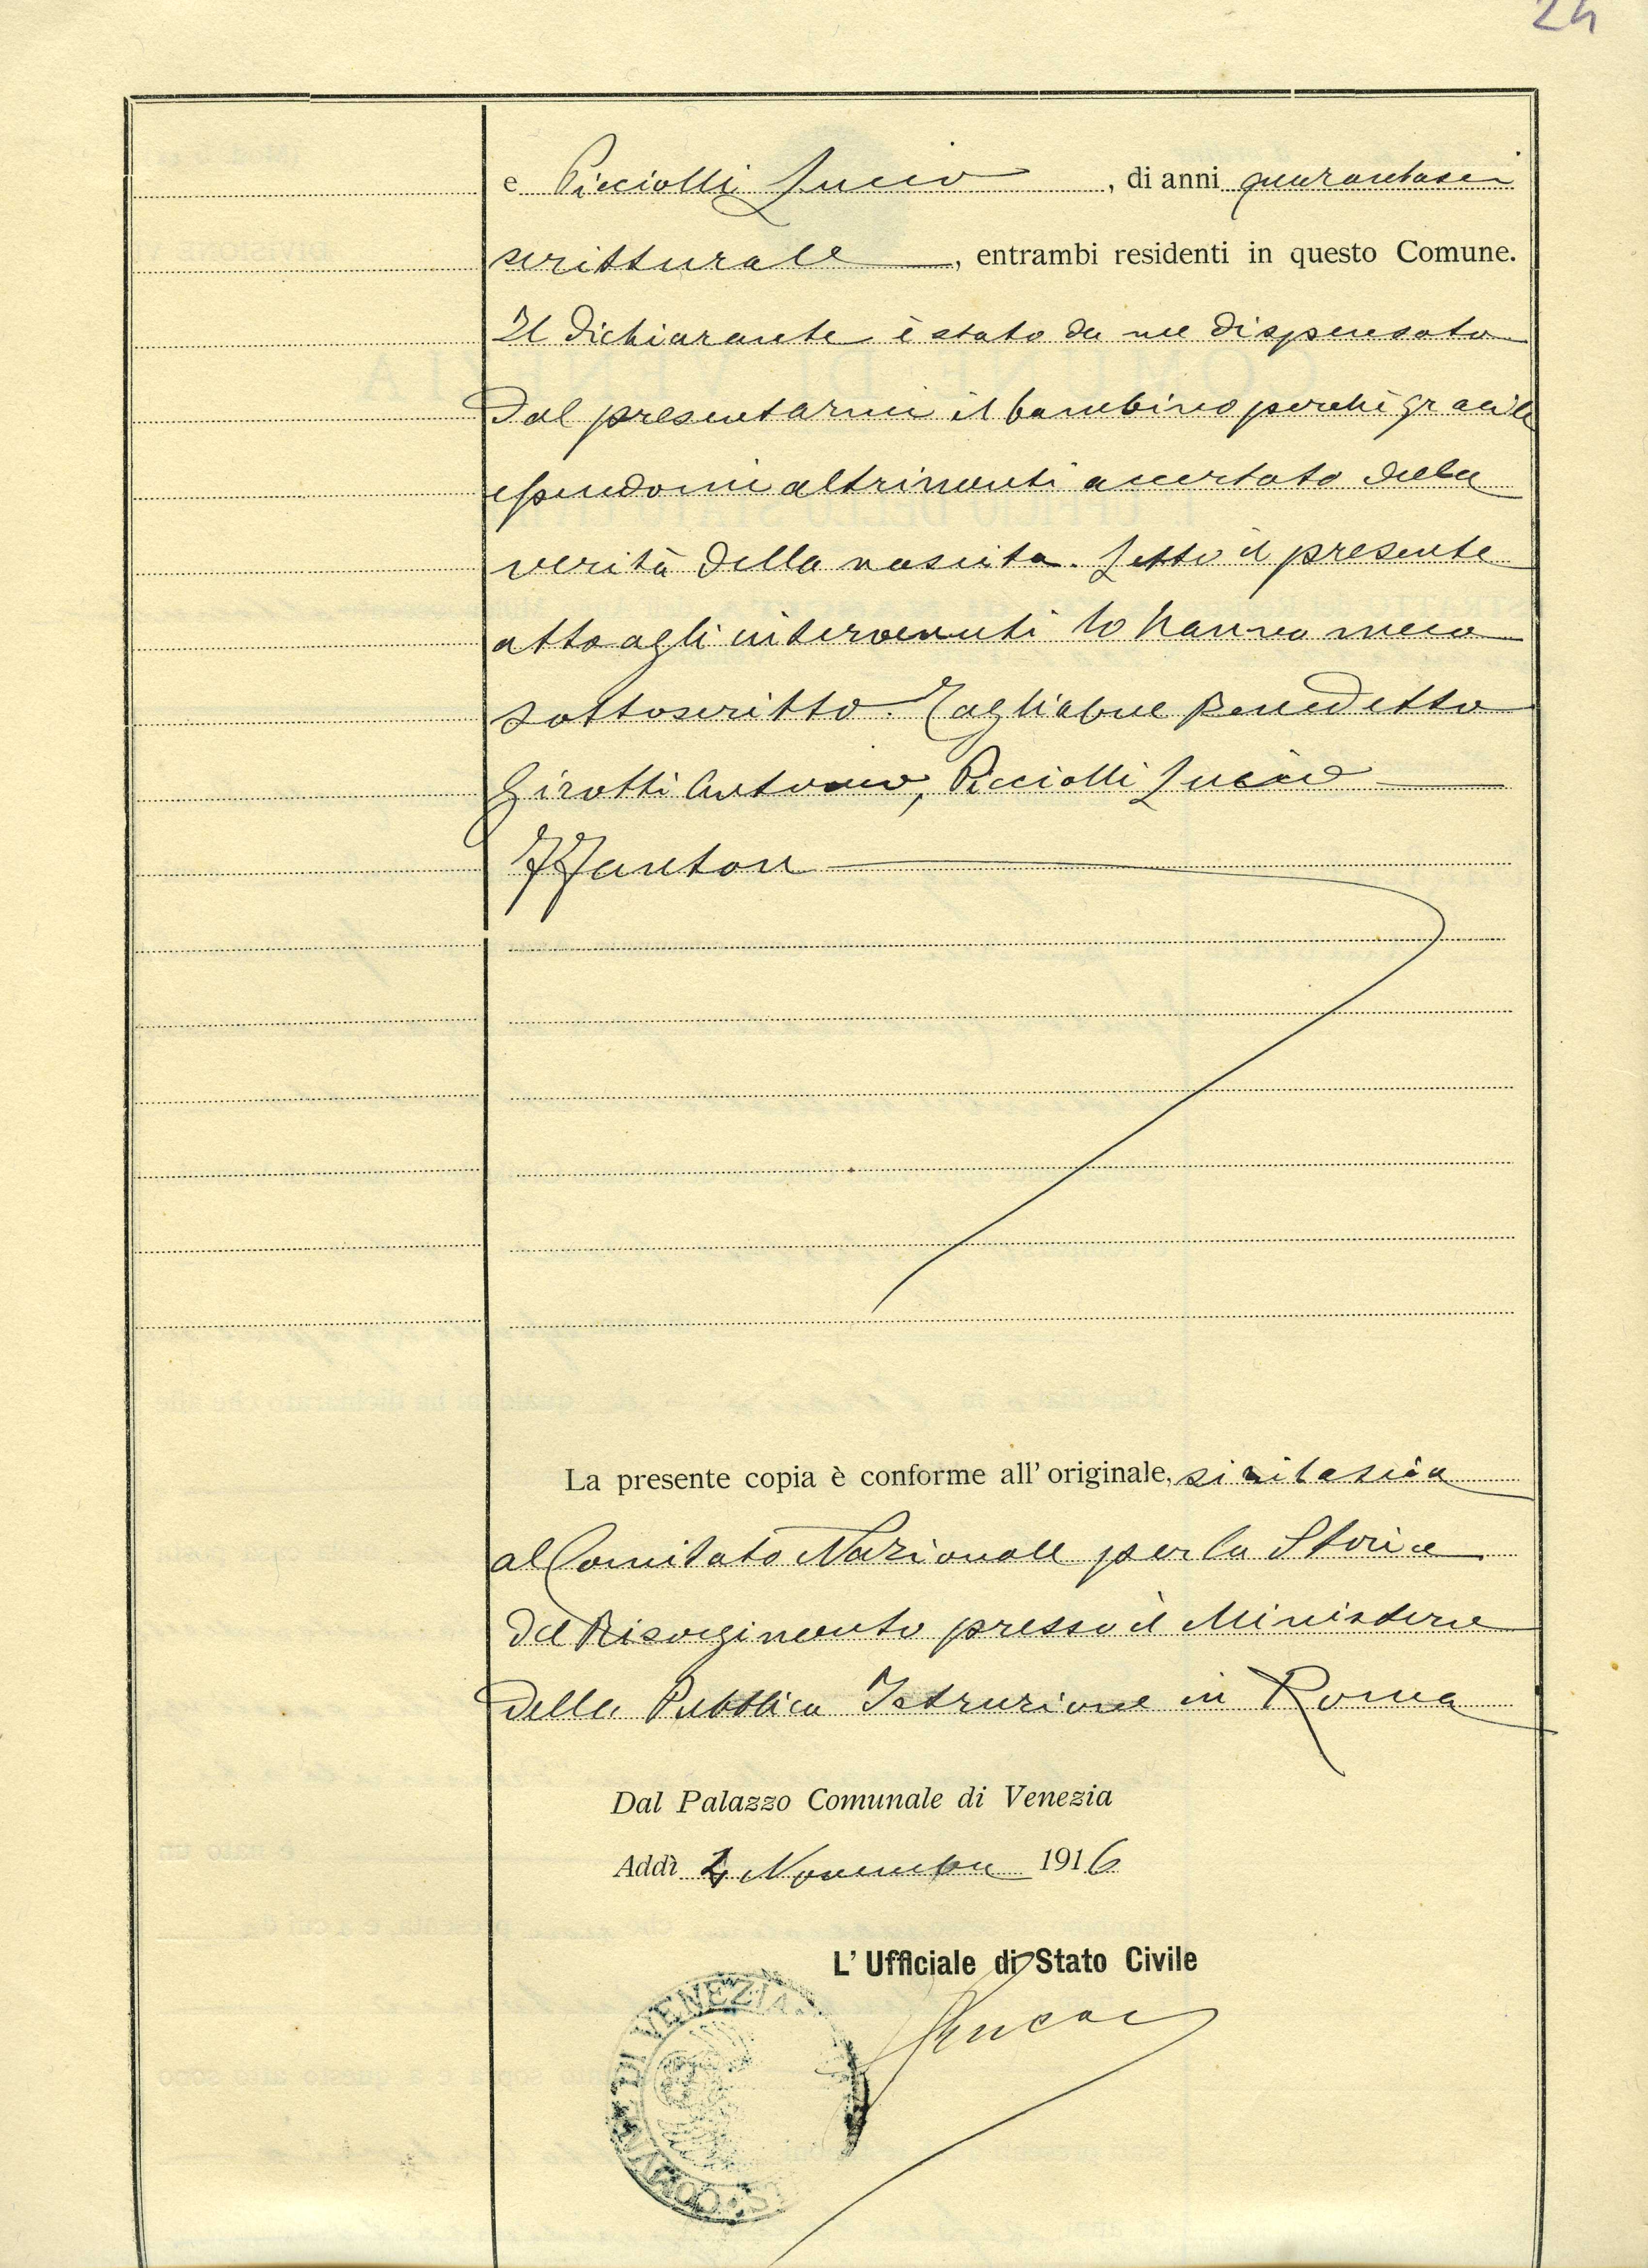 24
e Picciolli Lucio, di anni quarantasei
scritturale, entrambi residenti in questo Comune.
Il dichiarante è stato da me dispensato
dal presentarmi il bambino perchè gracile
essendomi altrimenti accertato della
verità della nascita. Letto il presente
atto agli intervenuti lo hanno meco
sottoscritto. Tagliabue Benedetto
Girotti Antonio, Picciolli Lucio
La presente copia è conforme all' originale, si rilascia
al Comitato Nazionale per la Storia
del Risorgimento presso il Ministero
della Pubblica Istruzione in Roma
Dal Palazzo Comunale di Venezia
Addì Novembre 1916
L' Ufficiale di Stato Civile
COMVNE DI VENEZIA